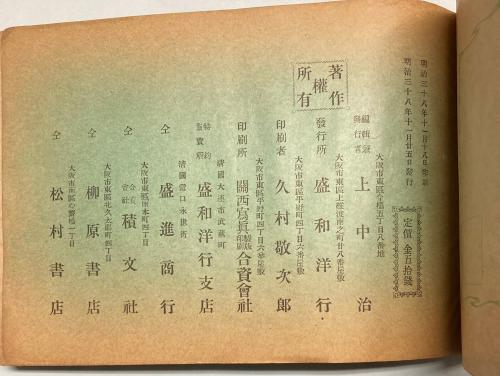 明治三十八年十一月十八日印刷
明治三十八年十一月廿五日發行
定價 金百拾錢
著作權所有
編輯兼發行者
大阪市東區今橋五丁目八番地
上中治
發行所
盛和洋行
印刷者
大阪市東區平野町四丁目六番屋敷
久村敬次郎
印刷所
大阪市東區平野町四丁目六番屋敷
關西寫眞製版印刷合資會社
特約販賣所
清國大連市武藏町
盛和洋行支店
仝
清國營口永世街
盛進商行
仝
合資會社
積文社
仝
大阪市東區北久太郎町四丁目
柳原書店
仝
大阪市南區心齋橋一丁目
松村書店